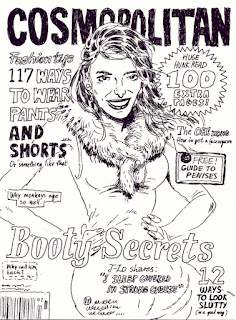 COSMOPOLITAN
Fashion tips
117 WAYS
TO WEAR
PANTS
AND
SHORTS
Or something like that
HUGE
HUNK READ
100
EXTRA
PAGES!
The
How to get a
FREE!
GUIDE TO
PENISES
Why monkeys age
so well
Booty Secrets
Why
J-Lo shares:
"I SLEEP COVERED
IN STRONG CHEESE"
12
WAYS
TO LOOK
SLUTTY
(in a good way)